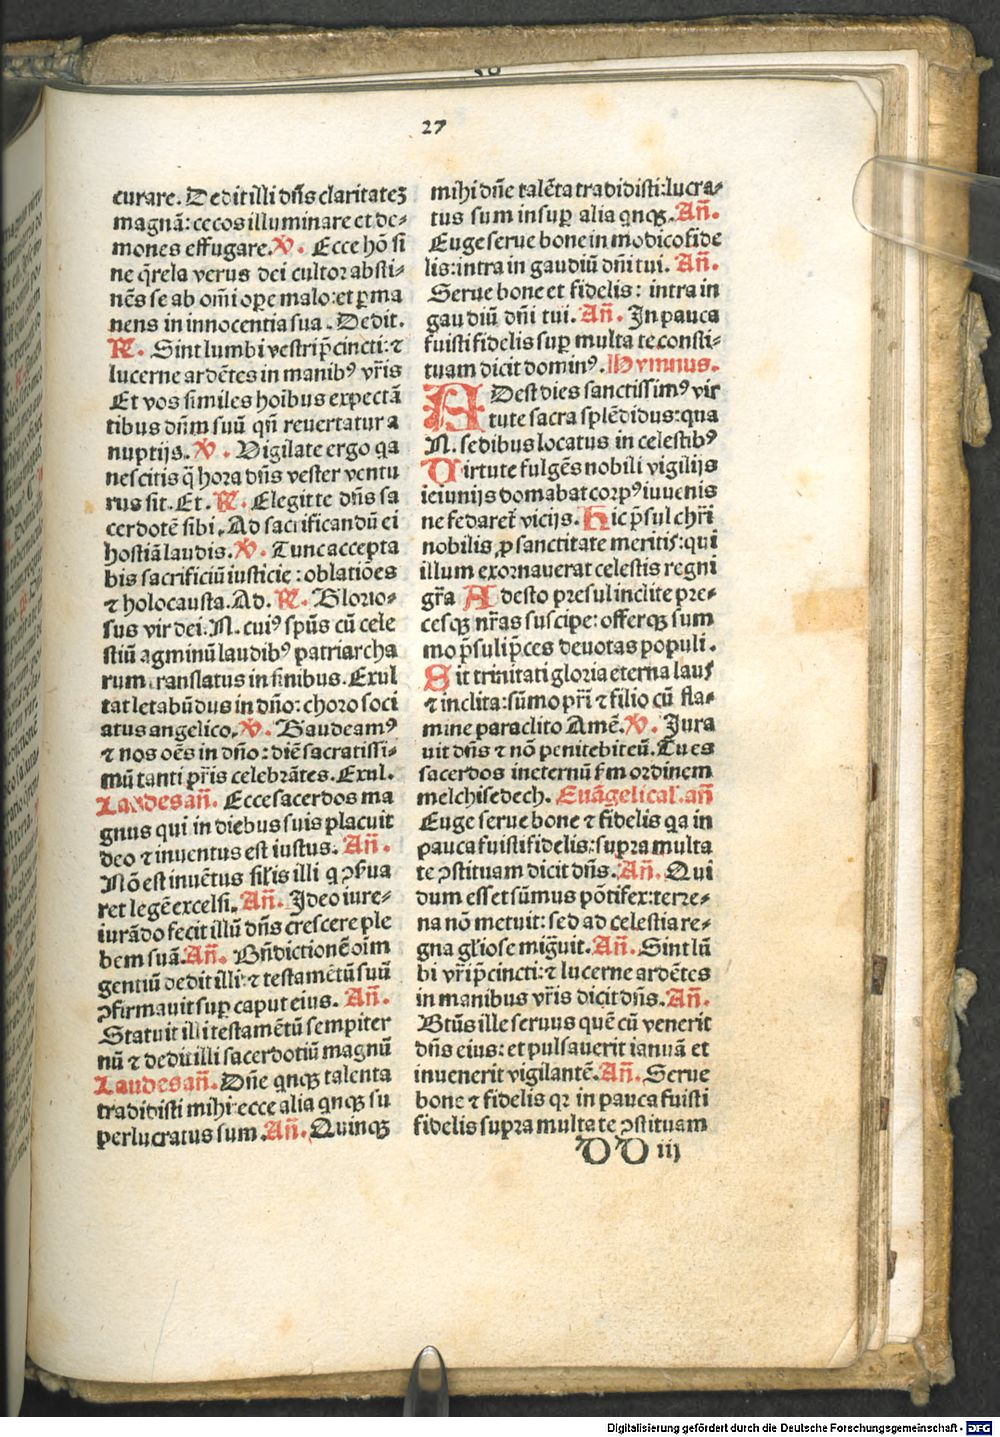 27
curare. Dedit illi dn̄s claritateꝫ
magnā: cecos illuminare et de-
mones effugare. ꝟ. Ecce hō si
ne q̄rela verus dei cultor absti-
nēs se ab om̄i oꝑe malo: et ꝑma
nens in innocentia sua. Dedit.
℟. Sint lumbi vestri p̄cincti: ⁊
lucerne ardētes in manibꝰ vr̄is
Et vos similes hoībus expectā
tibus dn̄m suū qn̄ reuertatur a
nuptijs. ꝟ. Vigilate ergo qa
nescitis q̄ hora dn̄s vester ventu
rus sit. Et. ℟. Elegit te dn̄s sa
cerdotē sibi. Ad sacrificandū ei
hostiā laudis. ꝟ. Tunc accepta
bis sacrificiū iusticie: oblatiōes
⁊ holocausta. Ad. ℟. Glorio-
sus vir dei. N. cuiꝰ spūs cū cele
stiū agminū laudibꝰ patriarcha
rum translatus in finibus. Exul
tat letabūdus in dn̄o: choro soci
atus angelico. ꝟ. Gaudeamꝰ
⁊ nos oēs in dn̄o: diē sacratissi-
mū tanti pr̄is celebrātes. Exul.
Laudes an̄. Ecce sacerdos ma
gnus qui in diebus suis placuit
deo ⁊ inuentus est iustus. An̄.
Nō est inuētus sil̄is illi q ꝯẜua
ret legē excelsi. An̄. Ideo iure-
iurādo fecit illū dn̄s crescere ple
bem suā. An̄. Bn̄dictionē oīm
gentiū dedit illi: ⁊ testamētū suū
ꝯfirmauit suꝑ caput eius. An̄.
Statuit illi testamētū sempiter
nū ⁊ dedit illi sacerdotiū magnū
Laudes an̄. Dn̄e qnqꝫ talenta
tradidisti mihi ecce alia qnqꝫ su
perlucratus sum. An̄. Quinqꝫ
mihi dn̄e talēta tradidisti: lucra-
tus sum insuꝑ alia qnqꝫ. An̄.
Euge serue bone in modico fide
lis: intra in gaudiū dn̄i tui. An̄.
Serue bone et fidelis: intra in
gaudiū dn̄i tui. An̄. In pauca
fuisti fidelis suꝑ multa te consti-
tuam dicit dominꝰ. Hymnus.
Adest dies sanctissimꝰ vir
tute sacra splēdidus: qua
N. sedibus locatus in celestibꝰ
Virtute fulgēs nobili vigilijs
ieiunijs domabat corpꝰ iuuenis
ne fedaret vicijs. Hic p̄sul chr̄i
nobilis ꝓ sanctitate meritis: qui
illum exornauerat celestis regni
gr̄a Adesto presul inclite pre-
cesqꝫ nr̄as suscipe: offerqꝫ sum
mo p̄sulip̄ces deuotas populi.
Sit trinitati gloria eterna laus
⁊ inclita: sūmo pr̄i ⁊ filio cū fla-
mine paraclito Amē. ꝟ. Iura
uit dn̄s ⁊ nō penitebit eū. Tu es
sacerdos in eternū ẜm ordinem
melchisedech. Euāgelical. an̄
Euge serue bone ⁊ fidelis qa in
pauca fuisti fidelis: supra multa
te ꝯstituam dicit dn̄s. An̄. Qui
dum esset sūmus pōtifex: terre-
na nō metuit: sed ad celestia re-
gna gl̄iose mig̃uit. An̄. Sint lū
bi vr̄i p̄cincti: ⁊ lucerne ardētes
in manibus vr̄is dicit dn̄s. An̄.
Btūs ille seruus quē cū venerit
dn̄s eius: et pulsauerit ianuā et
inuenerit vigilantē. An̄. Serue
bone ⁊ fidelis qꝛ in pauca fuisti
fidelis supra multa te ꝯstituam
DD iij
Digitalisierung gefördert durch die Deutsche Forschungsgemeinschaft - DFG